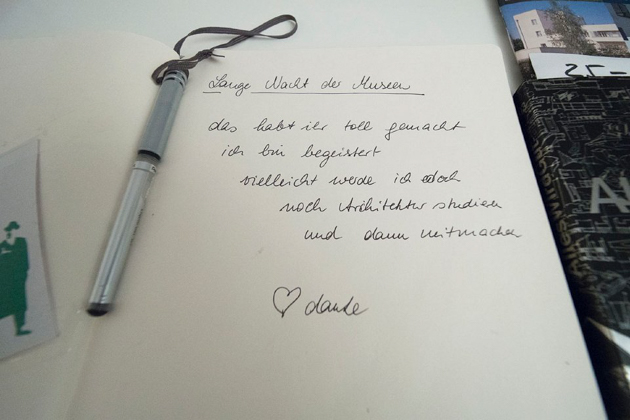 Lange Nacht der Museen
das habt ihr toll gemacht
ich bin begeistert
vielleicht werde ich doch
noch Architektur studieren
und dann mitmachen
♡ danke